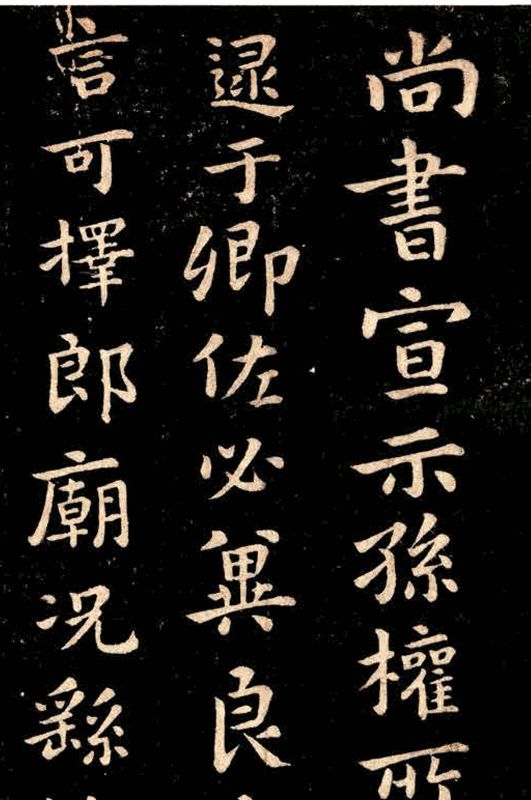 尚書宣示孫權所
逮于卿佐必冀良
言可擇郎廟況繇